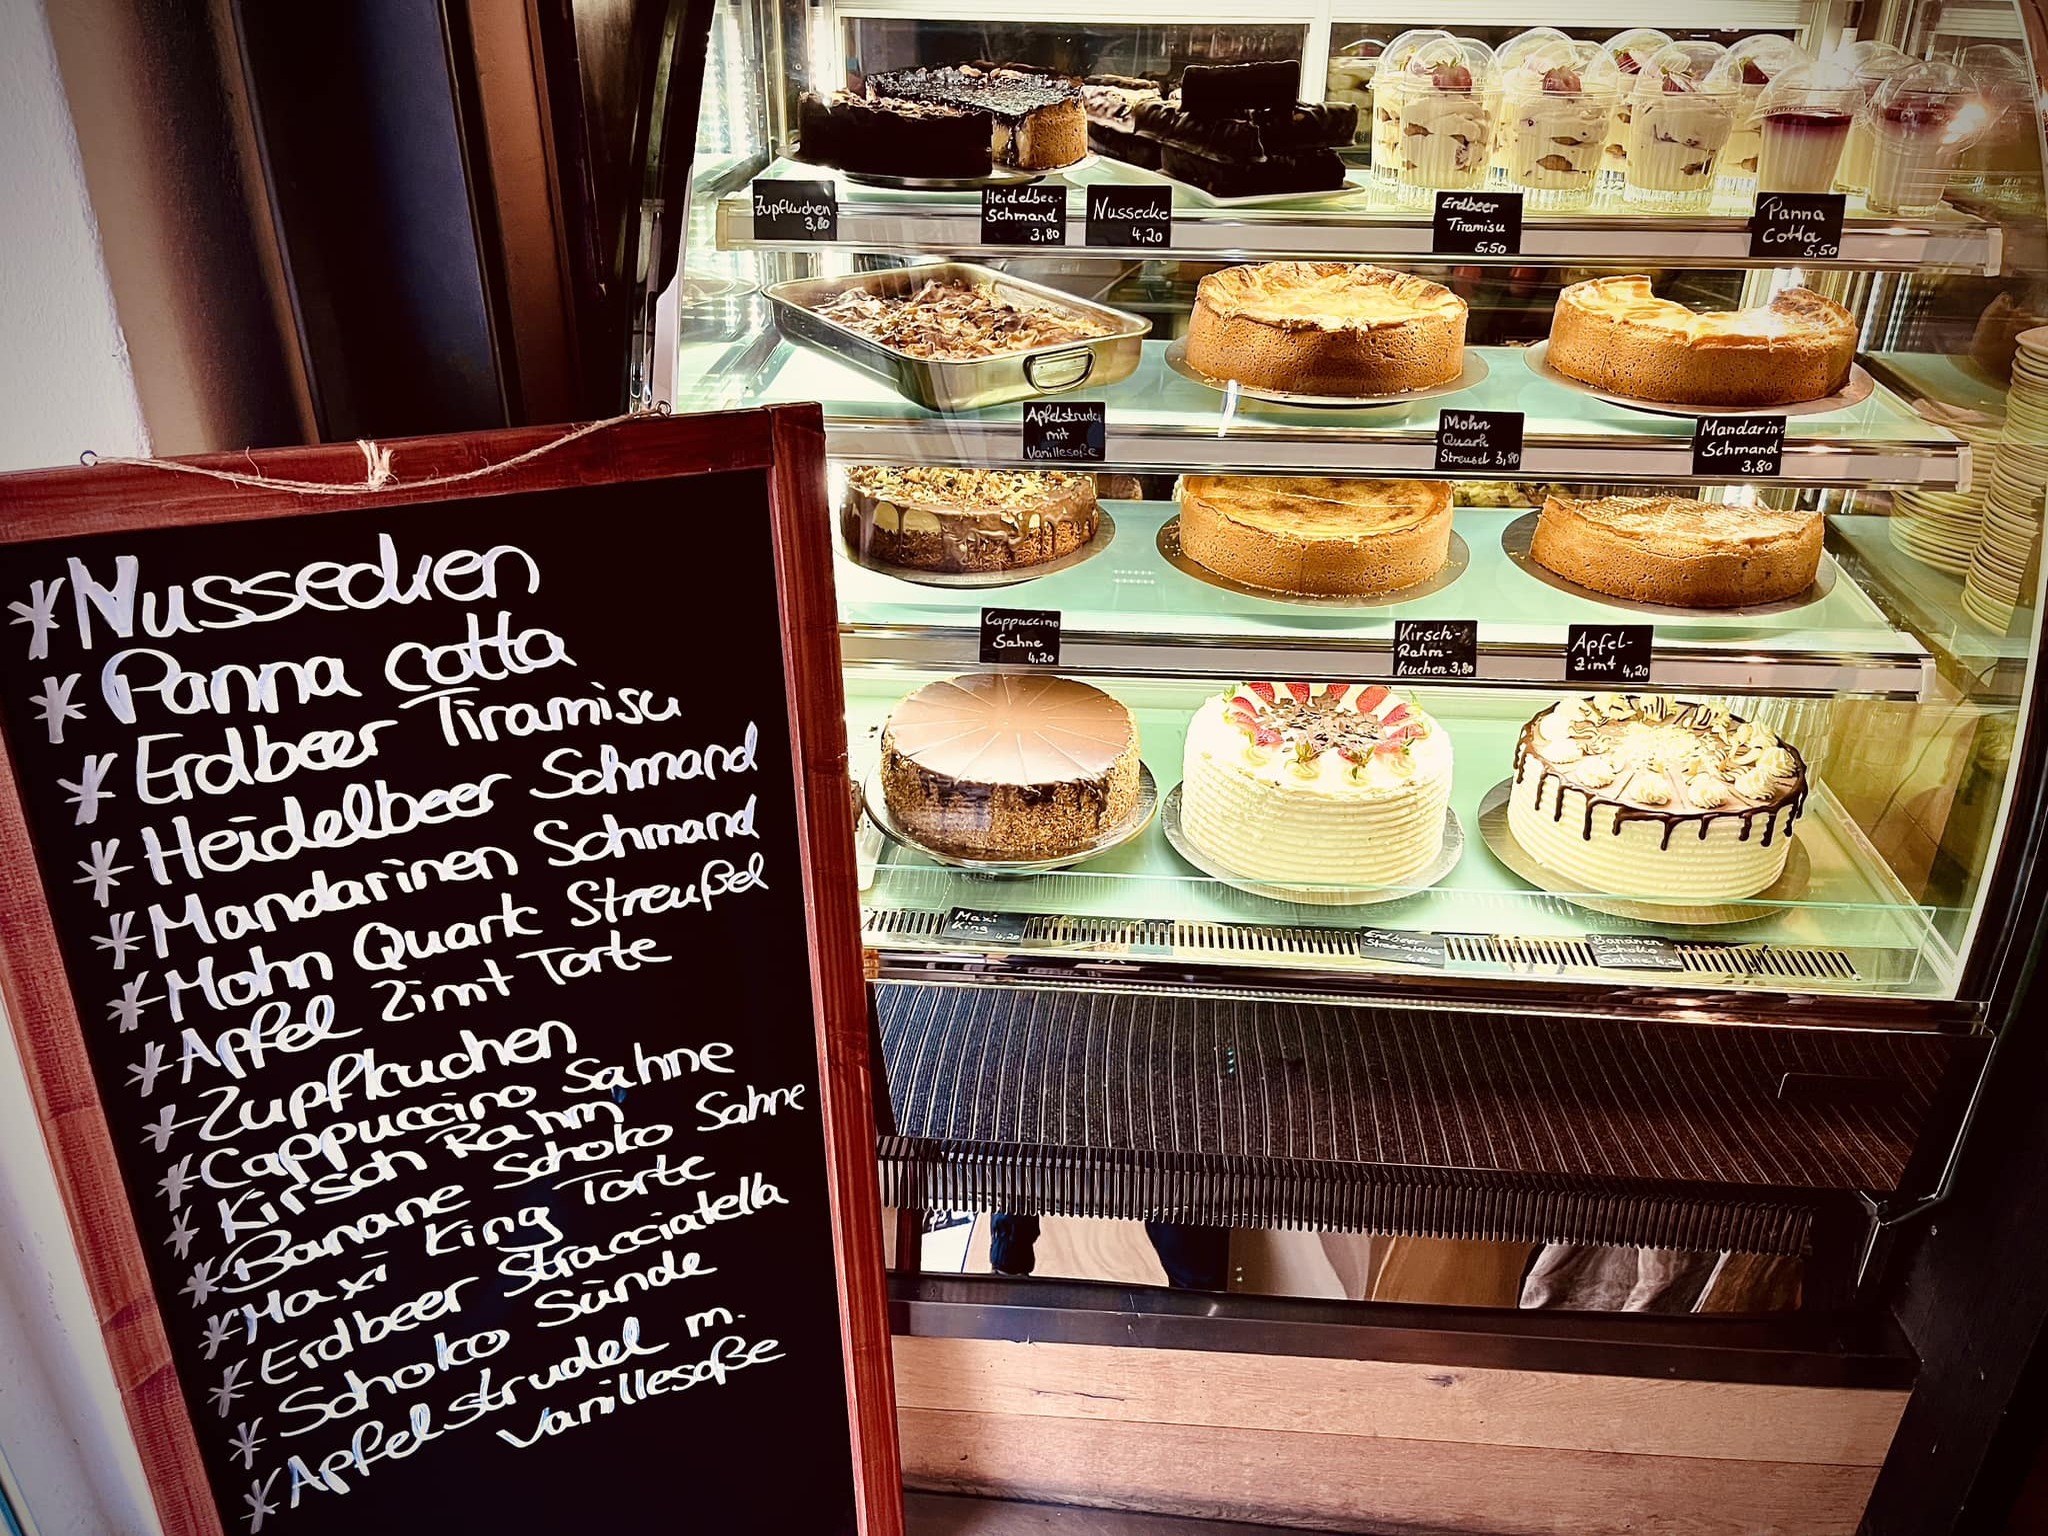 * Nussecken
* Panna cotta
* Erdbeer Tiramisu
* Heidelbeer Schmand
* Mandarinen Schmand
* Mohn Quark Streußel
* Apfel Zimt Torte
* Zupfkuchen
* Cappuccino Sahne
* Kirsch Rahm
* Banane Schoko Sahne
* Maxi King Torte
* Erdbeer Stracciatella
* Schoko Sünde
* Apfelstrudel m.
Vanillesoße
Zupfkuchen
3,80
Heidelbeer-
Schmand
3,80
Nussecke
4,20
Erdbeer
Tiramisu
5,50
Panna
Cotta
5,50
Apfelstrudel
mit
Vanillesoße
Mohn
Quark
Streusel 3,80
Mandarin-
Schmand
3,80
Cappuccino
Sahne
4,20
Kirsch-
Rahm-
kuchen 3,80
Apfel-
Zimt 4,20
Maxi
King 4,20
Erdbeer
Bananen
Schoko
Sahne 4,2